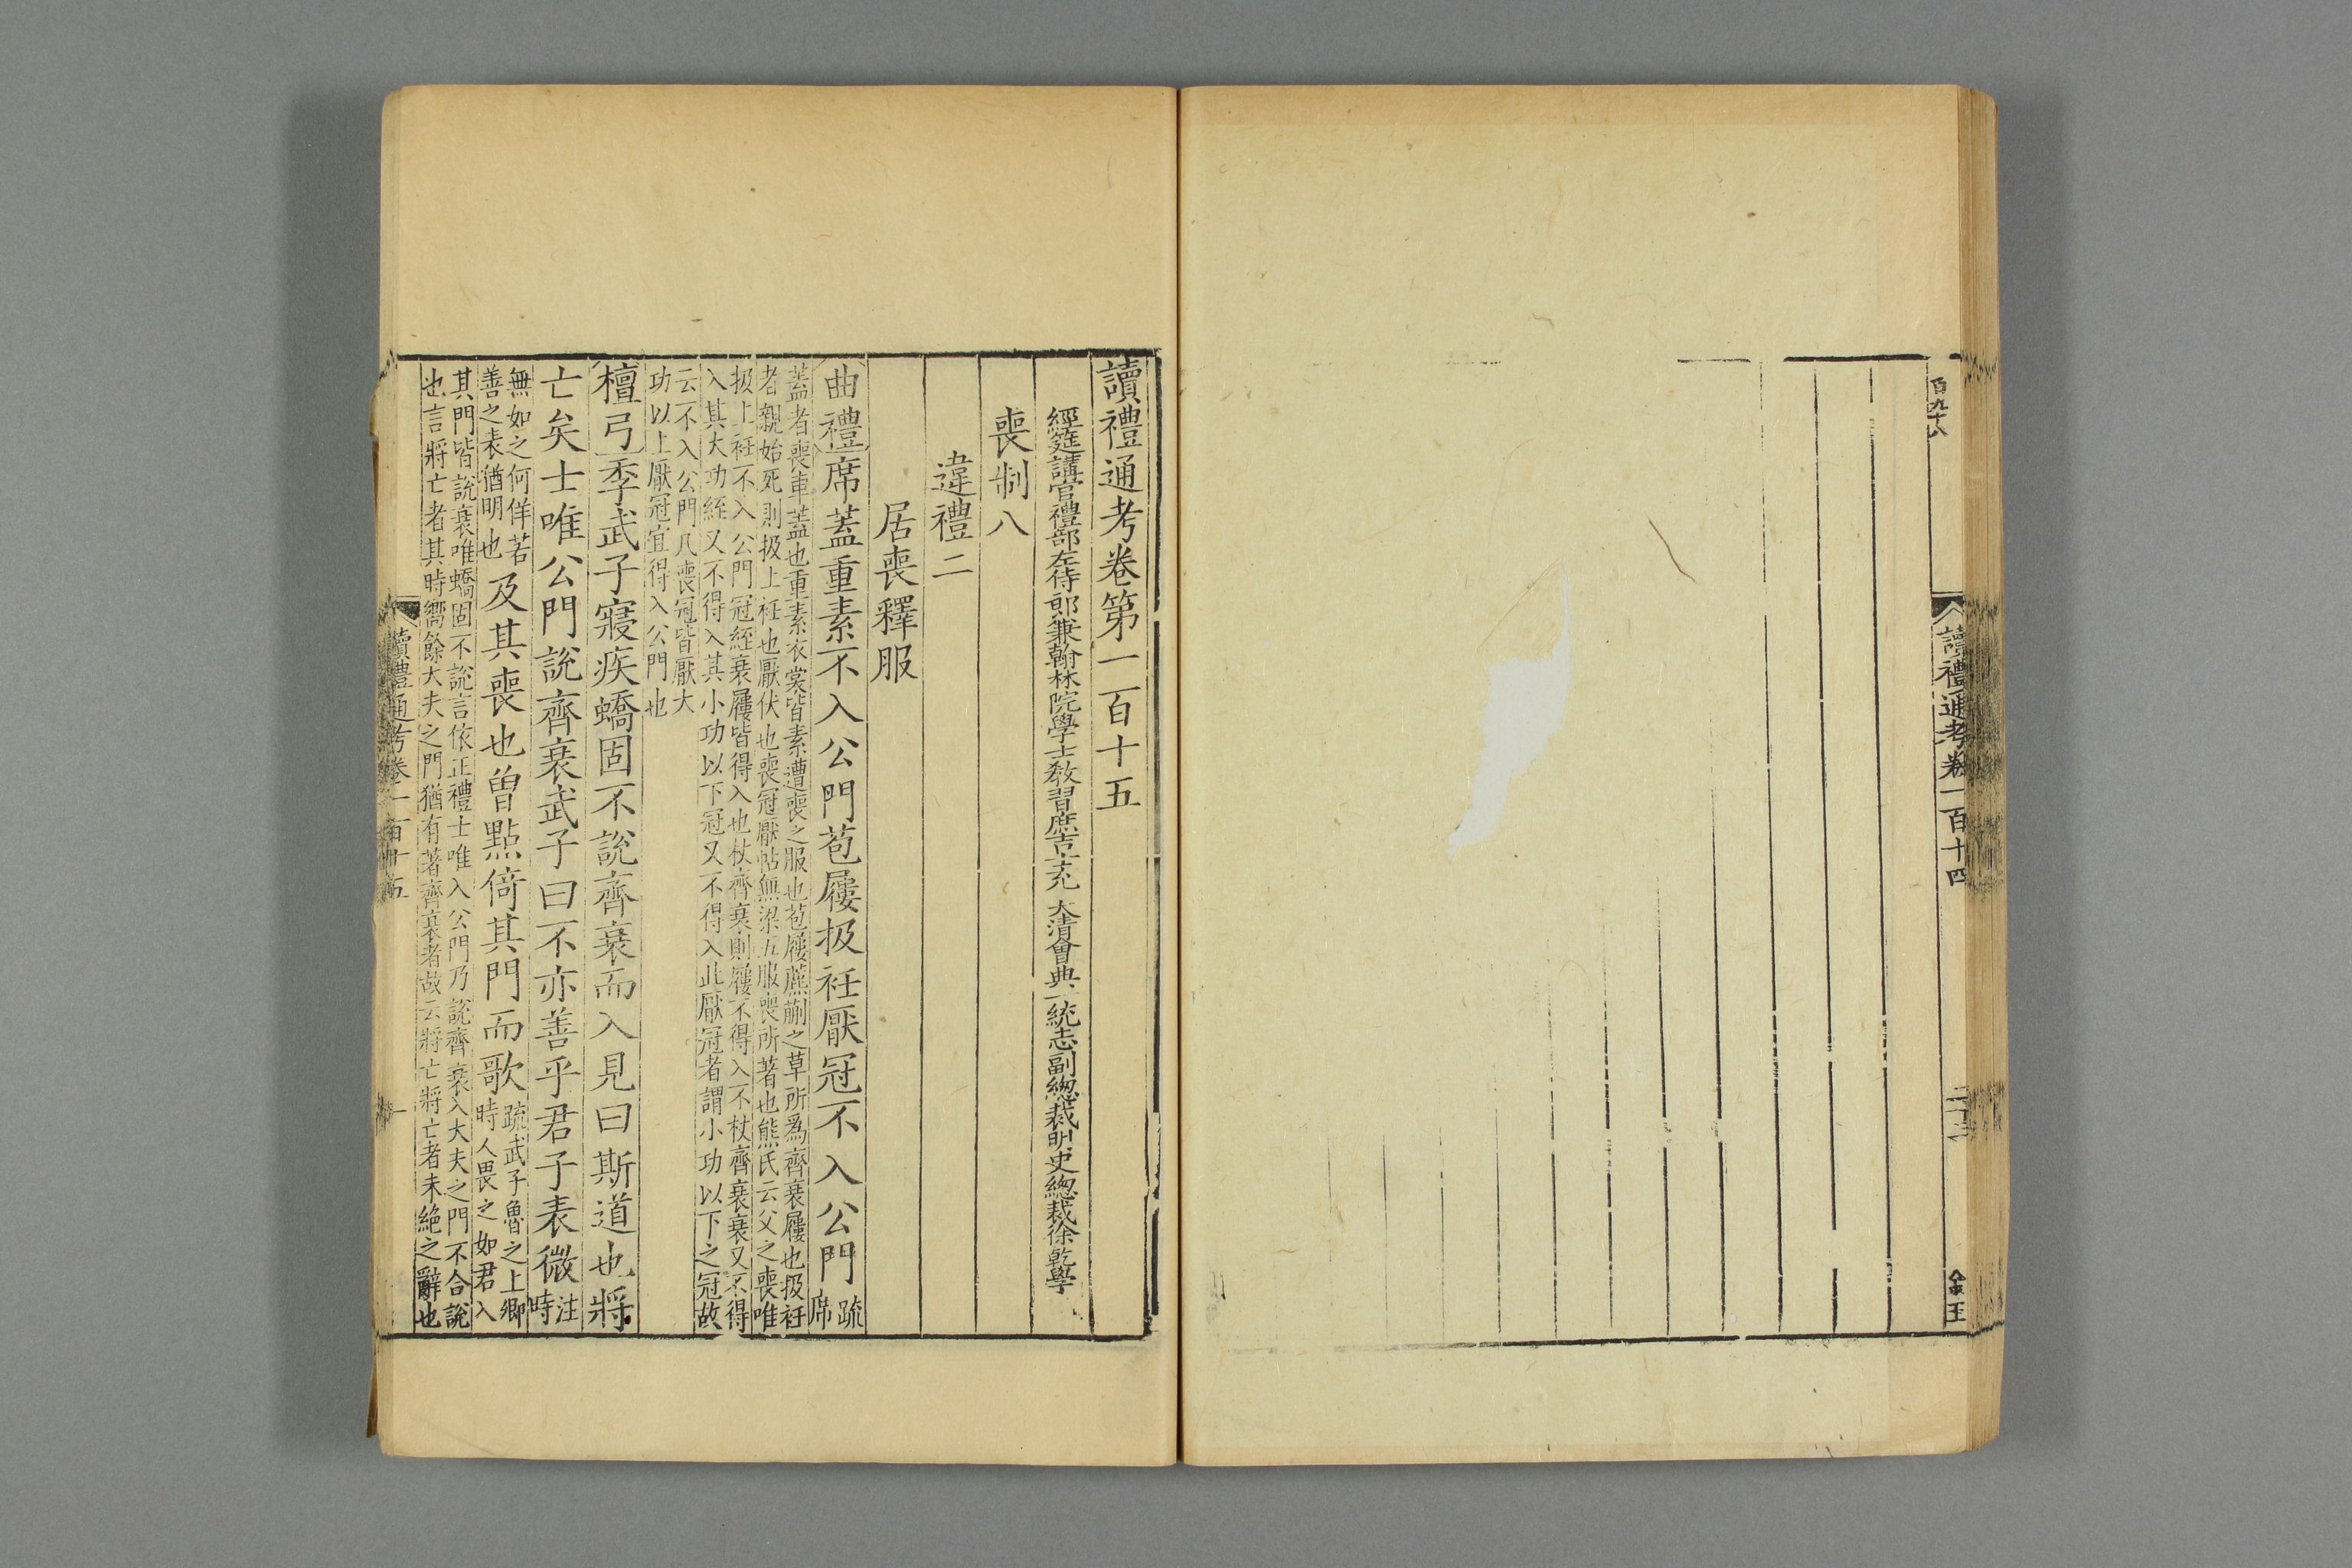 百九十八
讀禮通考卷一百十四
二十三
金玉
讀禮通考卷第一百十五
經筵講官禮部左侍郎兼翰林院學士教習庶吉士充 大清會典一統志副總裁明史總裁徐乾學
喪制八
違禮二
居喪釋服
曲禮席蓋重素不入公門苞屨扱衽厭冠不入公門疏席
蓋者喪車蓋也重素衣裳皆素遭喪之服也苞屨藨蒯之草所為齊衰屨也扱衽
者親始死則扱上衽也厭伏也喪冠厭帖無梁五服喪所著也熊氏云父之喪唯
扱上衽不入公門冠絰衰屨皆得入也杖齊衰則屨不得入不杖齊衰衰又不得
入其大功絰又不得入其小功以下冠又不得入此厭冠者謂小功以下之冠故
云不入公門凡喪冠皆厭大
功以上厭冠宜得入公門也
檀弓季武子寢疾蟜固不說齊衰而入見曰斯道也將
亡矣士唯公門說齊衰武子曰不亦善乎君子表微注時
無如之何佯若
善之表猶明也
及其喪也曾點倚其門而歌
疏武子魯之上卿
時人畏之如君入
其門皆說衰唯蟜固不說言依正禮士唯入公門乃說齊衰入大夫之門不合說
也言將亡者其時嚮餘大夫之門猶有著齊衰者故云將亡將亡者未絕之辭也
讀禮通考卷一百十五
一